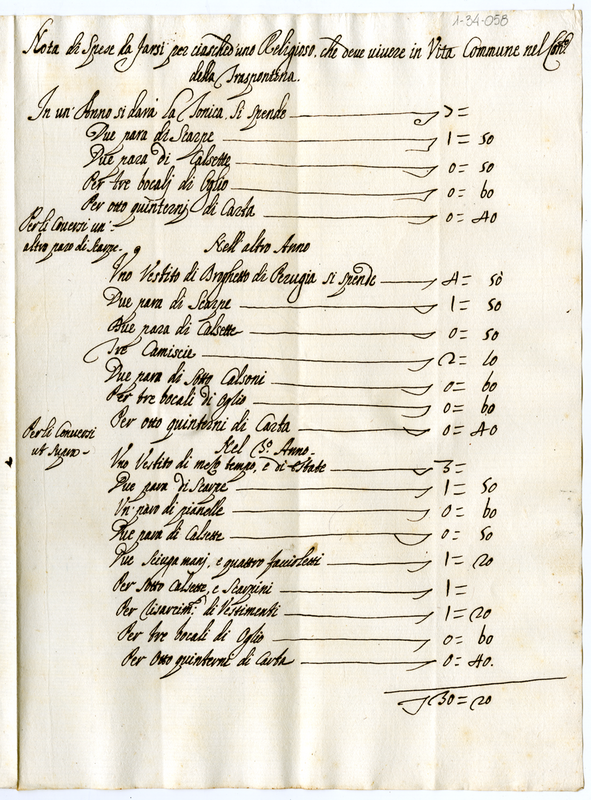 1-34-058
Nota di Spese da farsi per ciasched'uno Religioso, che deve vivere in Vita Commune nel Con.to
della Traspontina.
In un' Anno si darà la Tonica, si spende 7=
Due para di Scarpe 1= 50
Due para di Calsette 0= 50
Per tre bocali di Oglio 0= 60
Per otto quinterni di Carta 0= 40
Per li Conversi un'
altro paro di Scarpe.
Nell' altro Anno
Uno Vestito di Borghetto di Perugia si spende 4= 50
Due para di Scarpe 1= 50
Due para di Calsette 0= 50
Tre Camiscie 2= 10
Due para di Sotto Calsoni 0= 60
Per tre bocali di Oglio 0= 60
Per otto quinterni di Carta 0= 40
Per li Conversi
ut supra
Nel 3.o Anno
Uno Vestito di mezo tempo, e di estate 3=
Due para di Scarpe 1= 50
Un paro di pianelle 0= 60
Due para di Calsette 0= 50
Due Sciuga manj, e quattro faccioletti 1= 20
Per Sotto Calsette, e Scarpini 1=
Per di Vestimenti 1= 20
Per tre bocali di Oglio 0= 60
Per Otto quinterni di Carta 0= 40.
30= 20